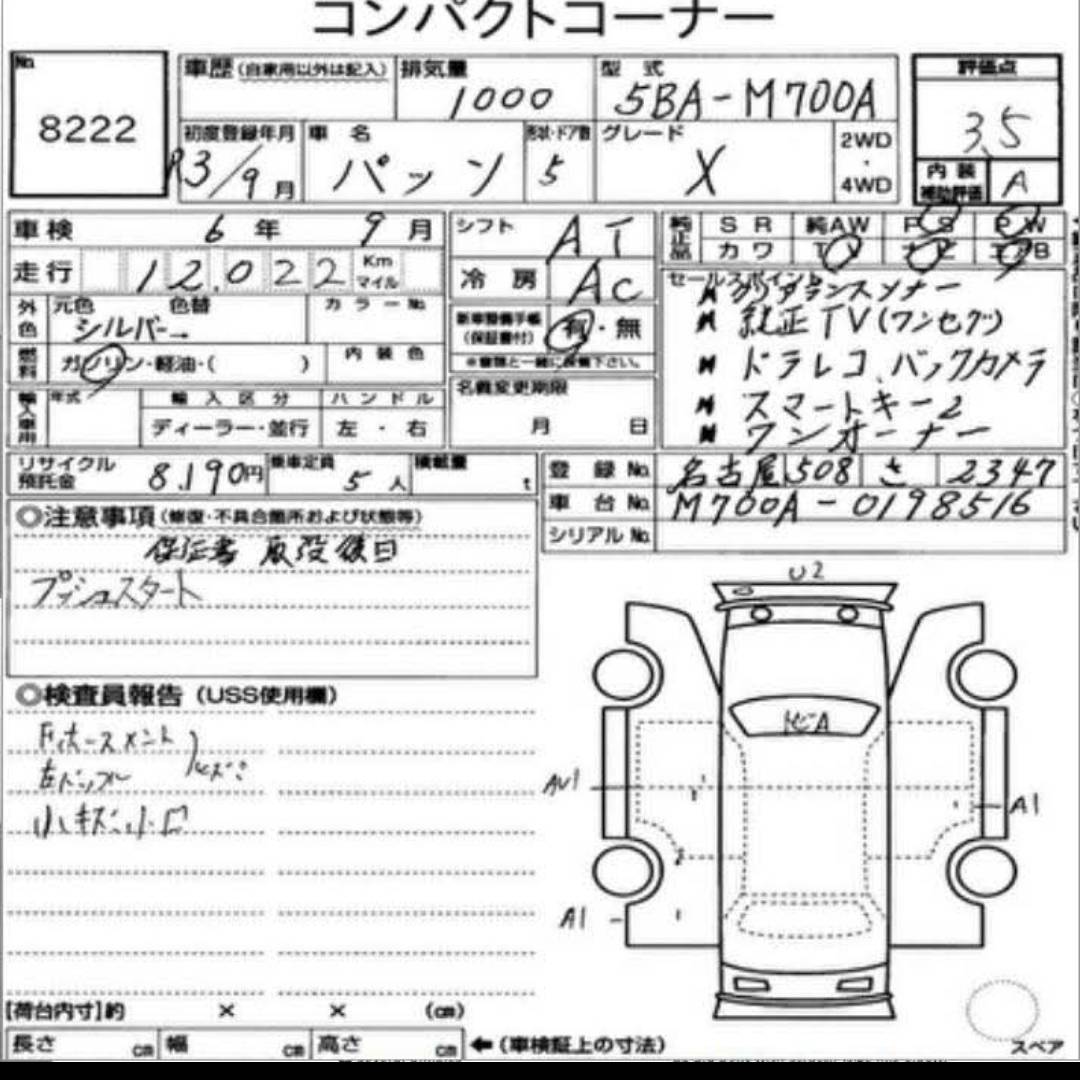 コンパクトコーナー
No 8222
車歴(自家用以外は記入) 排気量 1000 型式 5BA-M700A 評価点 3.5
初度登録年月 R3/9月 車名 パッソ 形状・ドア数 5 グレード X 2WD・4WD 内装補助評価 A
車検 6年 9月 シフト AT 純正品 SR 純AW PS PW
走行 12,022 Km マイル 冷房 AC カワ TV ナビ エアB
外色 元色 シルバー 色替 カラーNo. 新車整備手帳(保証書付) 有・無
※書類と一緒に保管下さい。
燃料 ガソリン・軽油・( ) 内装色
名義変更期限 月 日
輸入車用 年式 輸入区分 ディーラー・並行 ハンドル 左・右
セールスポイント
純正TV(ワンセグ)
ドラレコ、バックカメラ
スマートキー2
ワンオーナー
リサイクル預託金 8,190円 乗車定員 5人 積載量 t 登録No. 名古屋 508 さ 2347
車台No. M700A-0198516
シリアルNo.
◎注意事項(修復・不具合箇所および状態等)
保証書 取説後日
プッシュスタート
◎検査員報告(USS使用欄)
小キズ、小凹
U2
A1
A1
[荷台内寸]約 × × (cm)
長さ cm 幅 cm 高さ cm ←(車検証上の寸法)
スペア